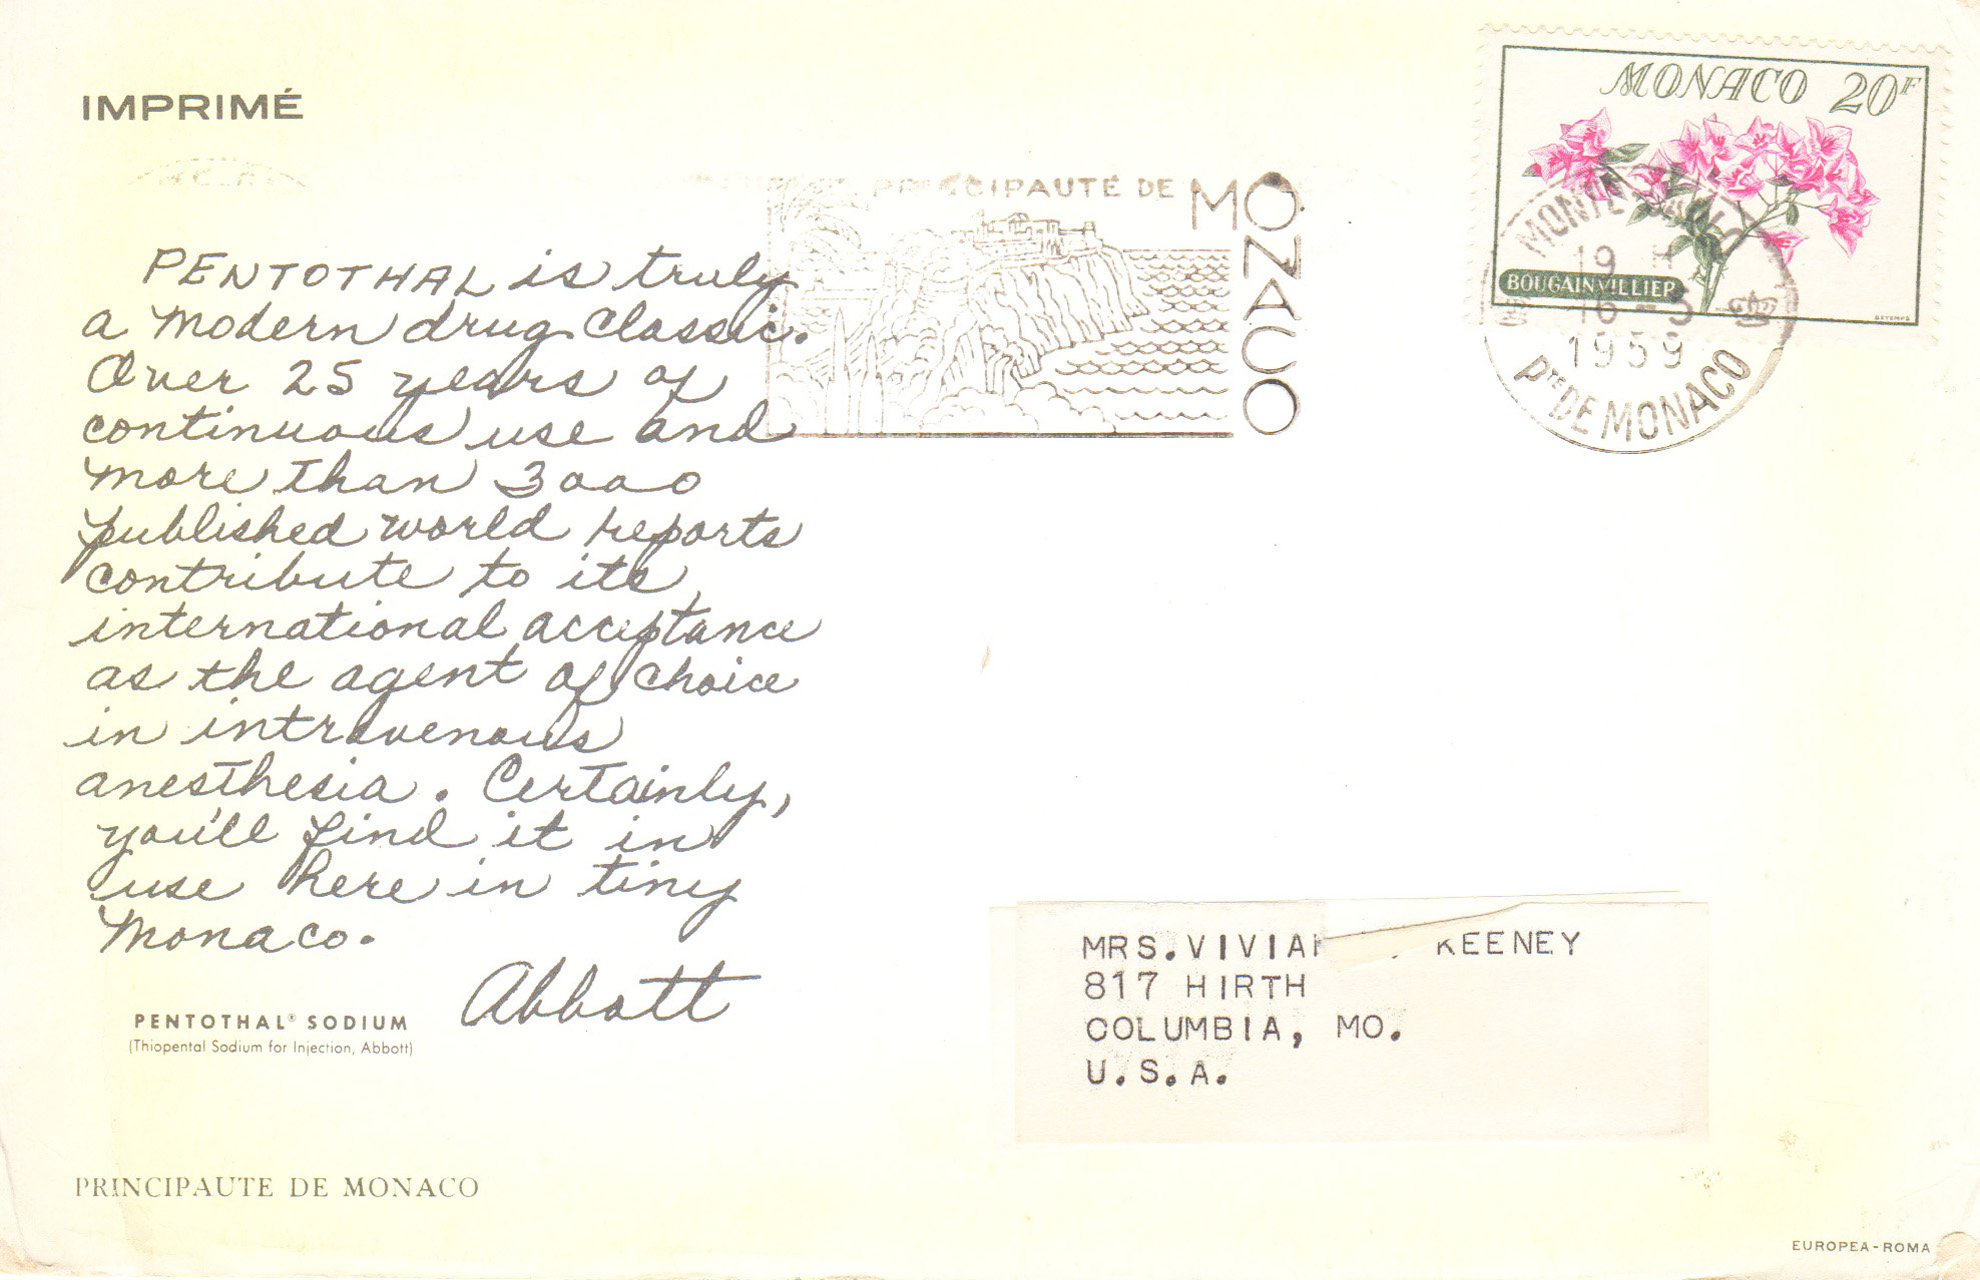 IMPRIMÉ
MONACO 20F
BOUGAINVILLIER
PRINCIPAUTÉ DE MONACO
19 H
16-5
1959
Pté DE MONACO
PENTOTHAL is truly
a modern drug classic.
Over 25 years of
continuous use and
more than 3000
published world reports
contribute to its
international acceptance
as the agent of choice
in intravenous
anesthesia. Certainly,
you'll find it in
use here in tiny
Monaco.
Abbott
PENTOTHAL® SODIUM
(Thiopental Sodium for Injection, Abbott)
MRS. VIVIAN KEENEY
817 HIRTH
COLUMBIA, MO.
U.S.A.
PRINCIPAUTE DE MONACO
EUROPEA-ROMA